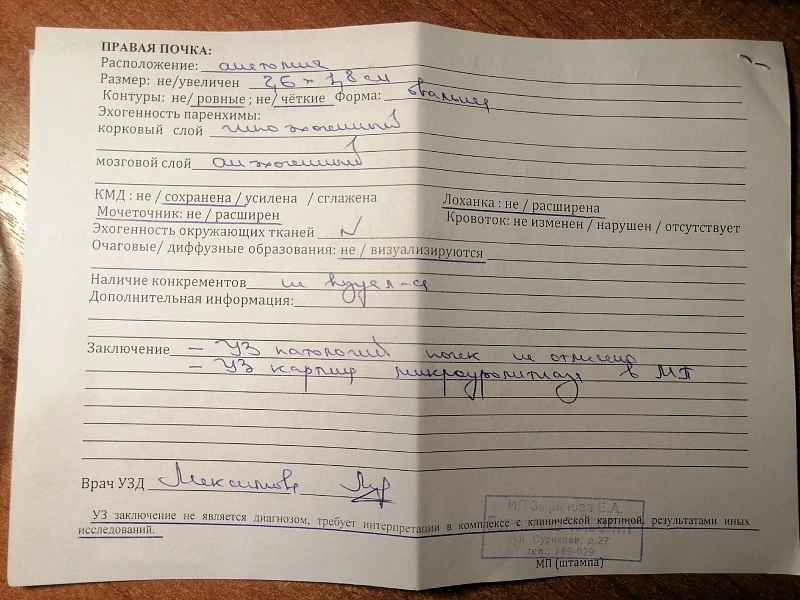 ПРАВАЯ ПОЧКА:
Расположение: анатомич
Размер: не/увеличен 2,6 х 1,8 см
Контуры: не/ ровные ; не/ чёткие Форма: овальная
Эхогенность паренхимы:
корковый слой гипоэхогенный
мозговой слой анэхогенный
КМД : не / сохранена / усилена / сглажена
Лоханка : не / расширена
Мочеточник: не / расширен
Кровоток: не изменен / нарушен / отсутствует
Эхогенность окружающих тканей N
Очаговые/ диффузные образования: не / визуализируются
Наличие конкрементов не визуал-я
Дополнительная информация:
Заключение – УЗ патологий почек не отмечено
– УЗ картина микроуролитиаза в МП
Врач УЗД
УЗ заключение не является диагнозом, требует интерпретации в комплексе с клинической картиной, результатами иных
исследований.
ИП Е.А.
ул. Сурикова, д.27
тел.: 789-029
МП (штампа)